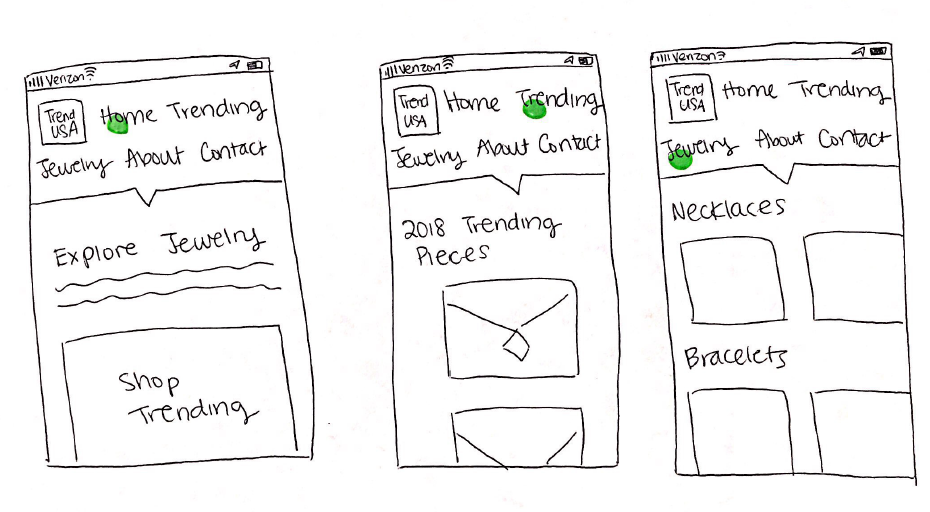 Verizon
Trend
USA
Home Trending
Jewelry About Contact
Explore Jewelry
Shop
Trending
Verizon
Trend
USA
Home Trending
Jewelry About Contact
2018 Trending
Pieces
Verizon
Trend
USA
Home Trending
Jewelry About Contact
Necklaces
Bracelets